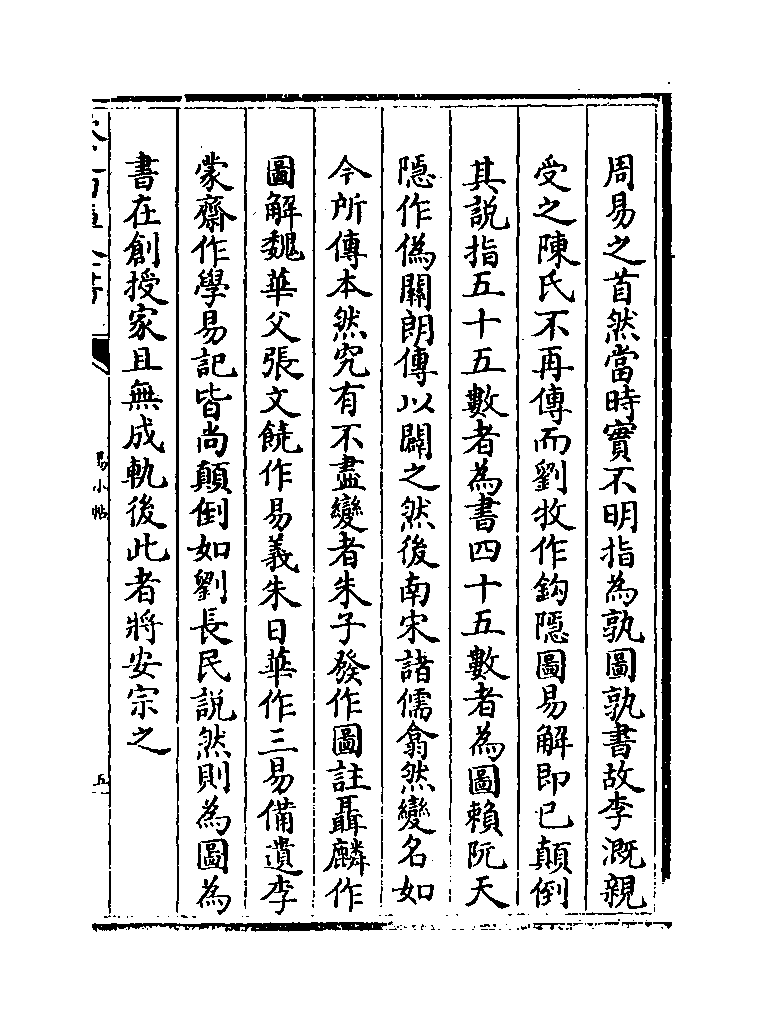 周易之首然當時實不明指為孰圖孰書故李溉親
受之陳氏不再傳而劉牧作鈎隱圖易解即已顛倒
其說指五十五數者為書四十五數者為圖賴阮天
隱作偽關朗傳以闢之然後南宋諸儒翕然變名如
今所傳本然究有不盡變者朱子發作圖註聶麟作
圖解魏華父張文饒作易義朱日華作三易備遺李
蒙齋作學易記皆尚顛倒如劉長民說然則為圖為
書在創授家且無成軌後此者將安宗之
易小帖
五